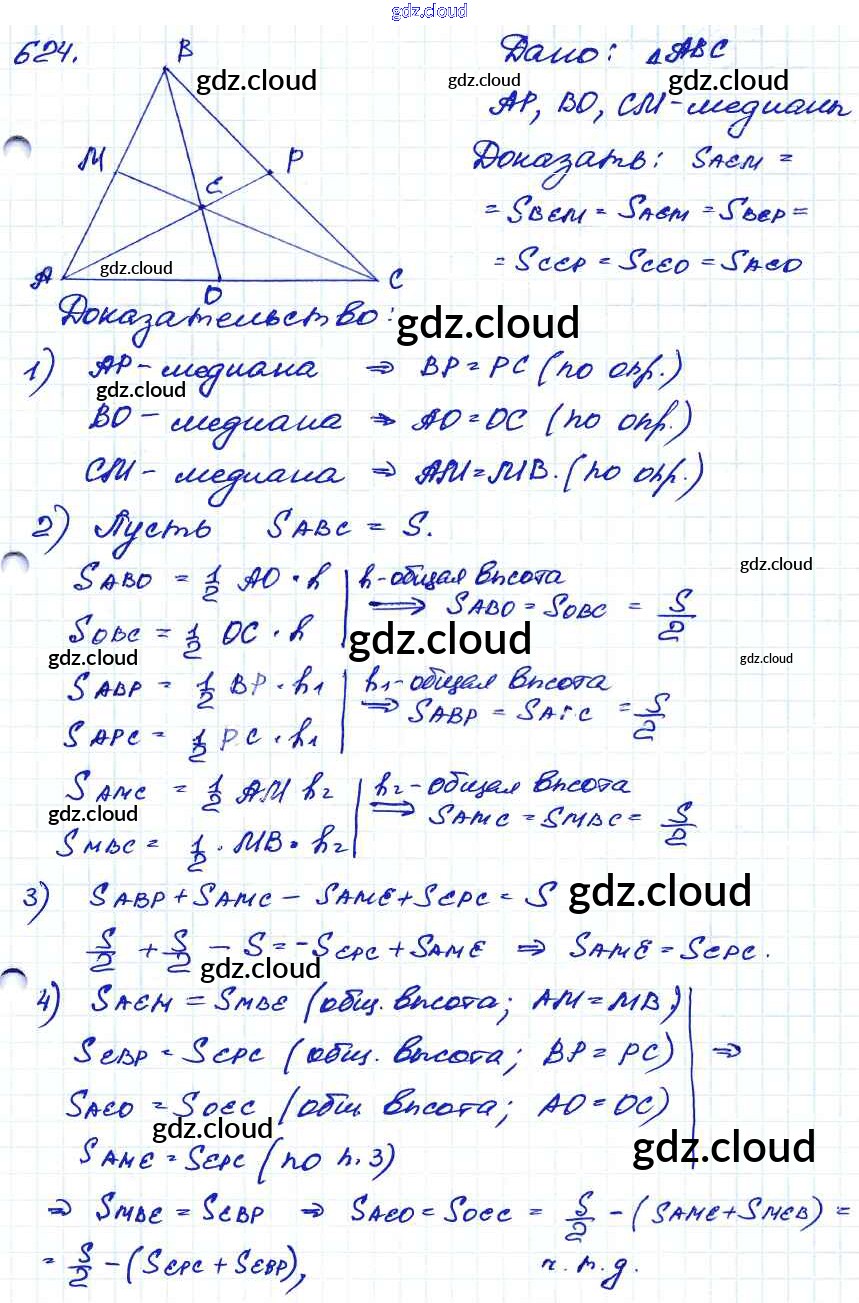 gdz.cloud
624.
B
M
P
E
A
O
C
gdz.cloud
gdz.cloud
Дано: △ABC
gdz.cloud
gdz.cloud
AP, BO, CM - медианы
Доказать: SAEM =
= SBEM = SAEM = SBEP =
= SCEP = SCEO = SAEO
Доказательство:
gdz.cloud
1) AP - медиана ⇒ BP = PC (по опр.)
gdz.cloud
BO - медиана ⇒ AO = OC (по опр.)
CM - медиана ⇒ AM = MB. (по опр.)
2) Пусть SABC = S.
gdz.cloud
SABO = 1/2 AO · h | h - общая высота
SOBC = 1/2 OC · h | ⇒ SABO = SOBC = S/2
gdz.cloud
gdz.cloud
gdz.cloud
SABP = 1/2 BP · h1 | h1 - общая высота
SAPC = 1/2 PC · h1 | ⇒ SABP = SAPC = S/2
SAMC = 1/2 AM h2 | h2 - общая высота
gdz.cloud
SMBC = 1/2 · MB · h2 | ⇒ SAMC = SMBC = S/2
3) SABP + SAMC - SAME + SEPC = S
gdz.cloud
S/2 + S/2 - S = -SEPC + SAME ⇒ SAME = SEPC.
gdz.cloud
4) SAEM = SMBE (общ. высота; AM = MB)
SEBP = SEPC (общ. высота; BP = PC) ⇒
SAEO = SOEC (общ. высота; AO = OC)
gdz.cloud
gdz.cloud
SAME = SEPC (по п. 3)
⇒ SMBE = SEBP ⇒ SAEO = SOEC = S/2 - (SAME + SMEB) =
= S/2 - (SEPC + SEBP), ч.т.д.